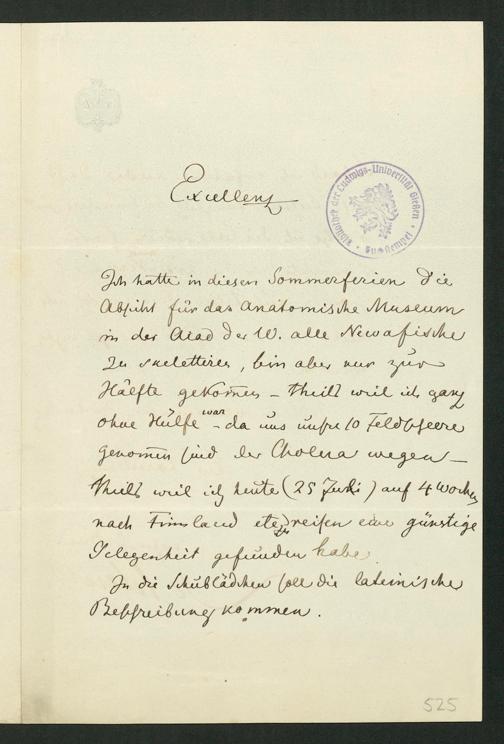 Excellenz
Bibliothek der Ludwigs-Universität Gießen
Ich hatte in diesen Sommerferien die
Absicht für das anatomische Museum
in der Acad der W. alle Newafische
zu skelettiren, bin aber nur zur
Hälfte gekom̄en – theils weil ich ganz
ohne Hülfe war – da uns unsre 10 Feldscheere
genom̄en sind der Cholera wegen –
theils weil ich heute (25 Juli) auf 4 Wochen
nach Finnland zu reisen eine günstige
Gelegenheit gefunden habe.
In die Schublädchen soll die lateinische
Beschreibung kommen.
525